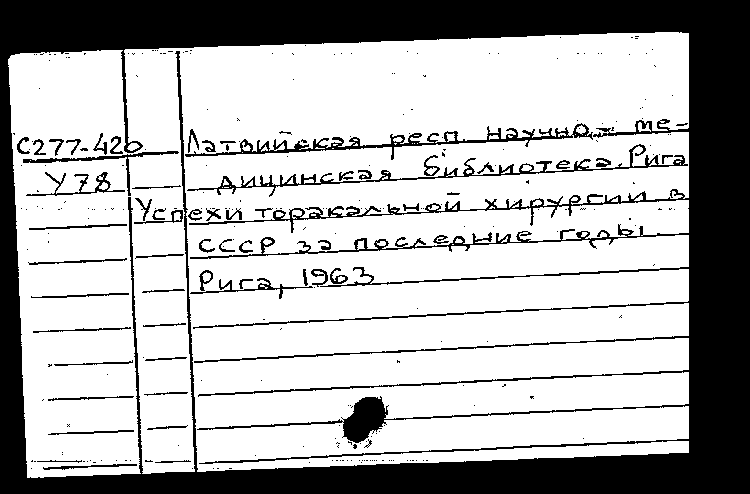 С277-420 Латвийская респ. научно-ме-
У78 дицинская библиотека. Рига
Успехи торакальной хирургии в
СССР за последние годы.
Рига, 1963